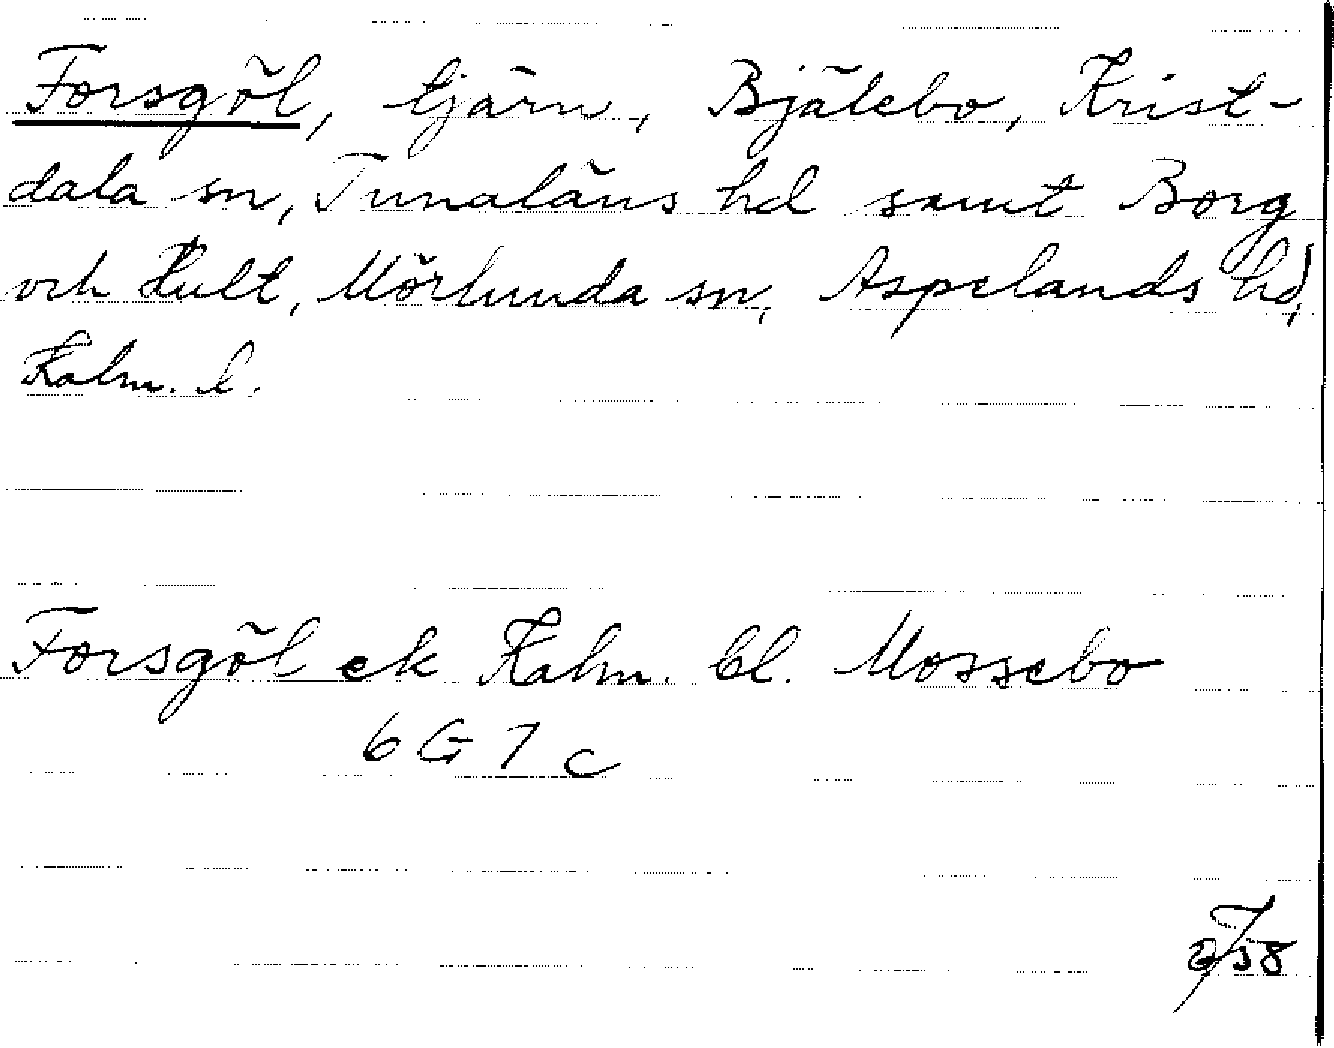 Forsgöl, tjärn, Bjälebo, Krist-
dala sn, Tunaläns hd samt Borg
och Hult, Mörlunda sn, Aspelands hd,
Kalm. l.
Forsgöl ek Kalm. bl. Mossebo
6 G 7 c
58